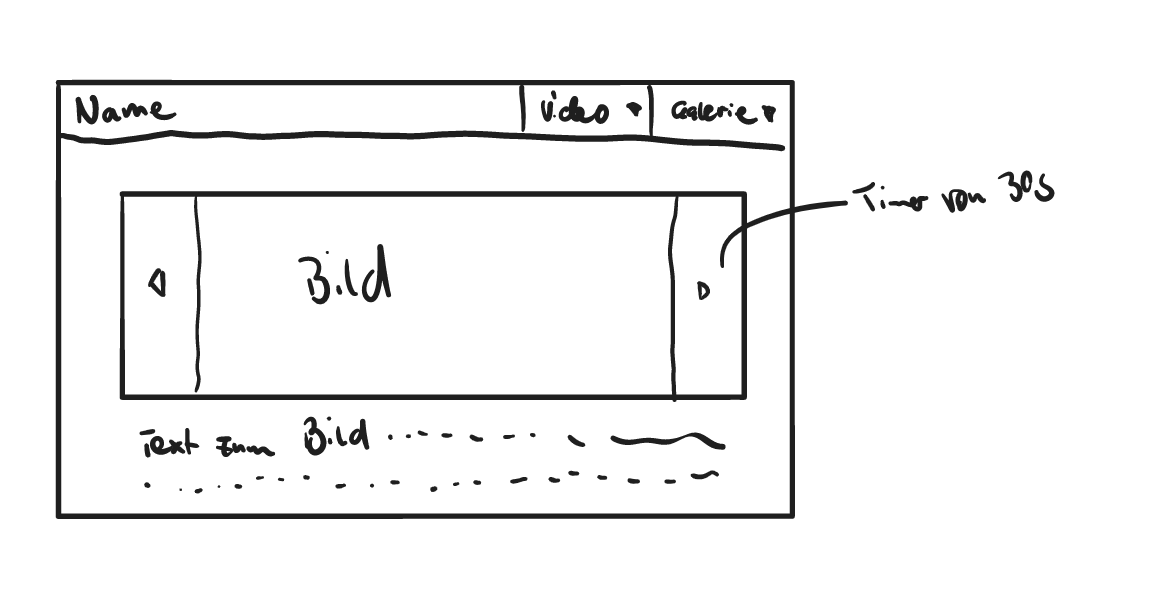 Name
Video
Galerie
Timer von 30s
Bild
Text zum Bild